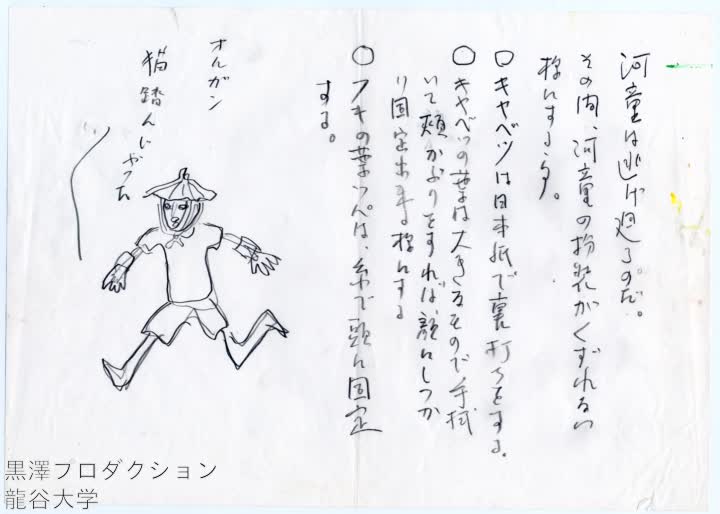 河童は逃げ廻るのだ。
その間、河童の扮装がくずれない
様にする事。
○キャベツは日本紙で裏打ちをする。
○キャベツの葉は大きなもので手拭
いで頬かぶりをすれば、顔にしっか
り固定出来る様にする
○フキの葉っぱは、糸で頭に固定
する。
オルガン
猫踏んじゃった
黒澤プロダクション
龍谷大学